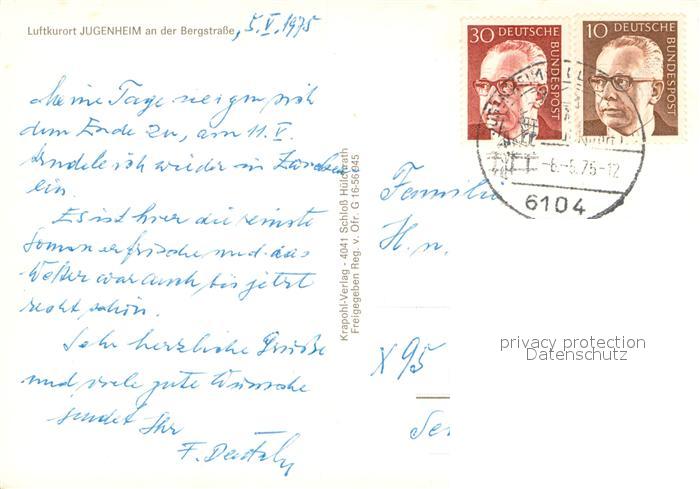 Luftkurort JUGENHEIM an der Bergstraße, 5.V.1975
Meine Tage neigen sich
dem Ende zu, am 11.V.
ich wieder in
ein.
Es ist hier die reinste
Sommerfrische und das
Wetter war auch bis jetzt
recht schön.
Sehr herzliche Grüße
und viele gute Wünsche
sendet Ihr
F.
Krapohl-Verlag - 4041 Schloß Hülchrath
Freigegeben Reg. v. Ofr. G 16-56045
30 DEUTSCHE
BUNDESPOST
10 DEUTSCHE
BUNDESPOST
-6.-5.75-12
6104
Familie
H. u.
X 95
privacy protection
Datenschutz